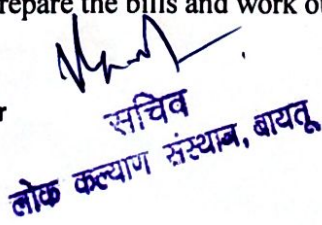 repare the bills and work ou
r
सचिव
लोक कल्याण संस्थान, बायतू